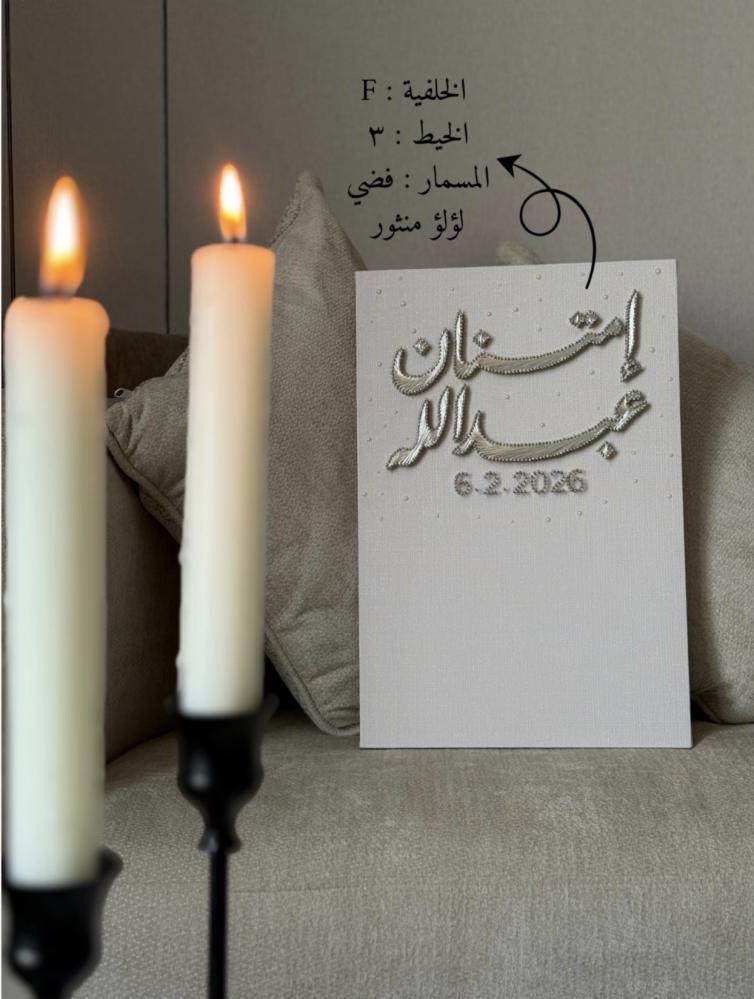 الخلفية : F
الخيط : ٣
المسمار : فضي
لؤلؤ منثور
إمتنان
عبدالله
6.2.2026